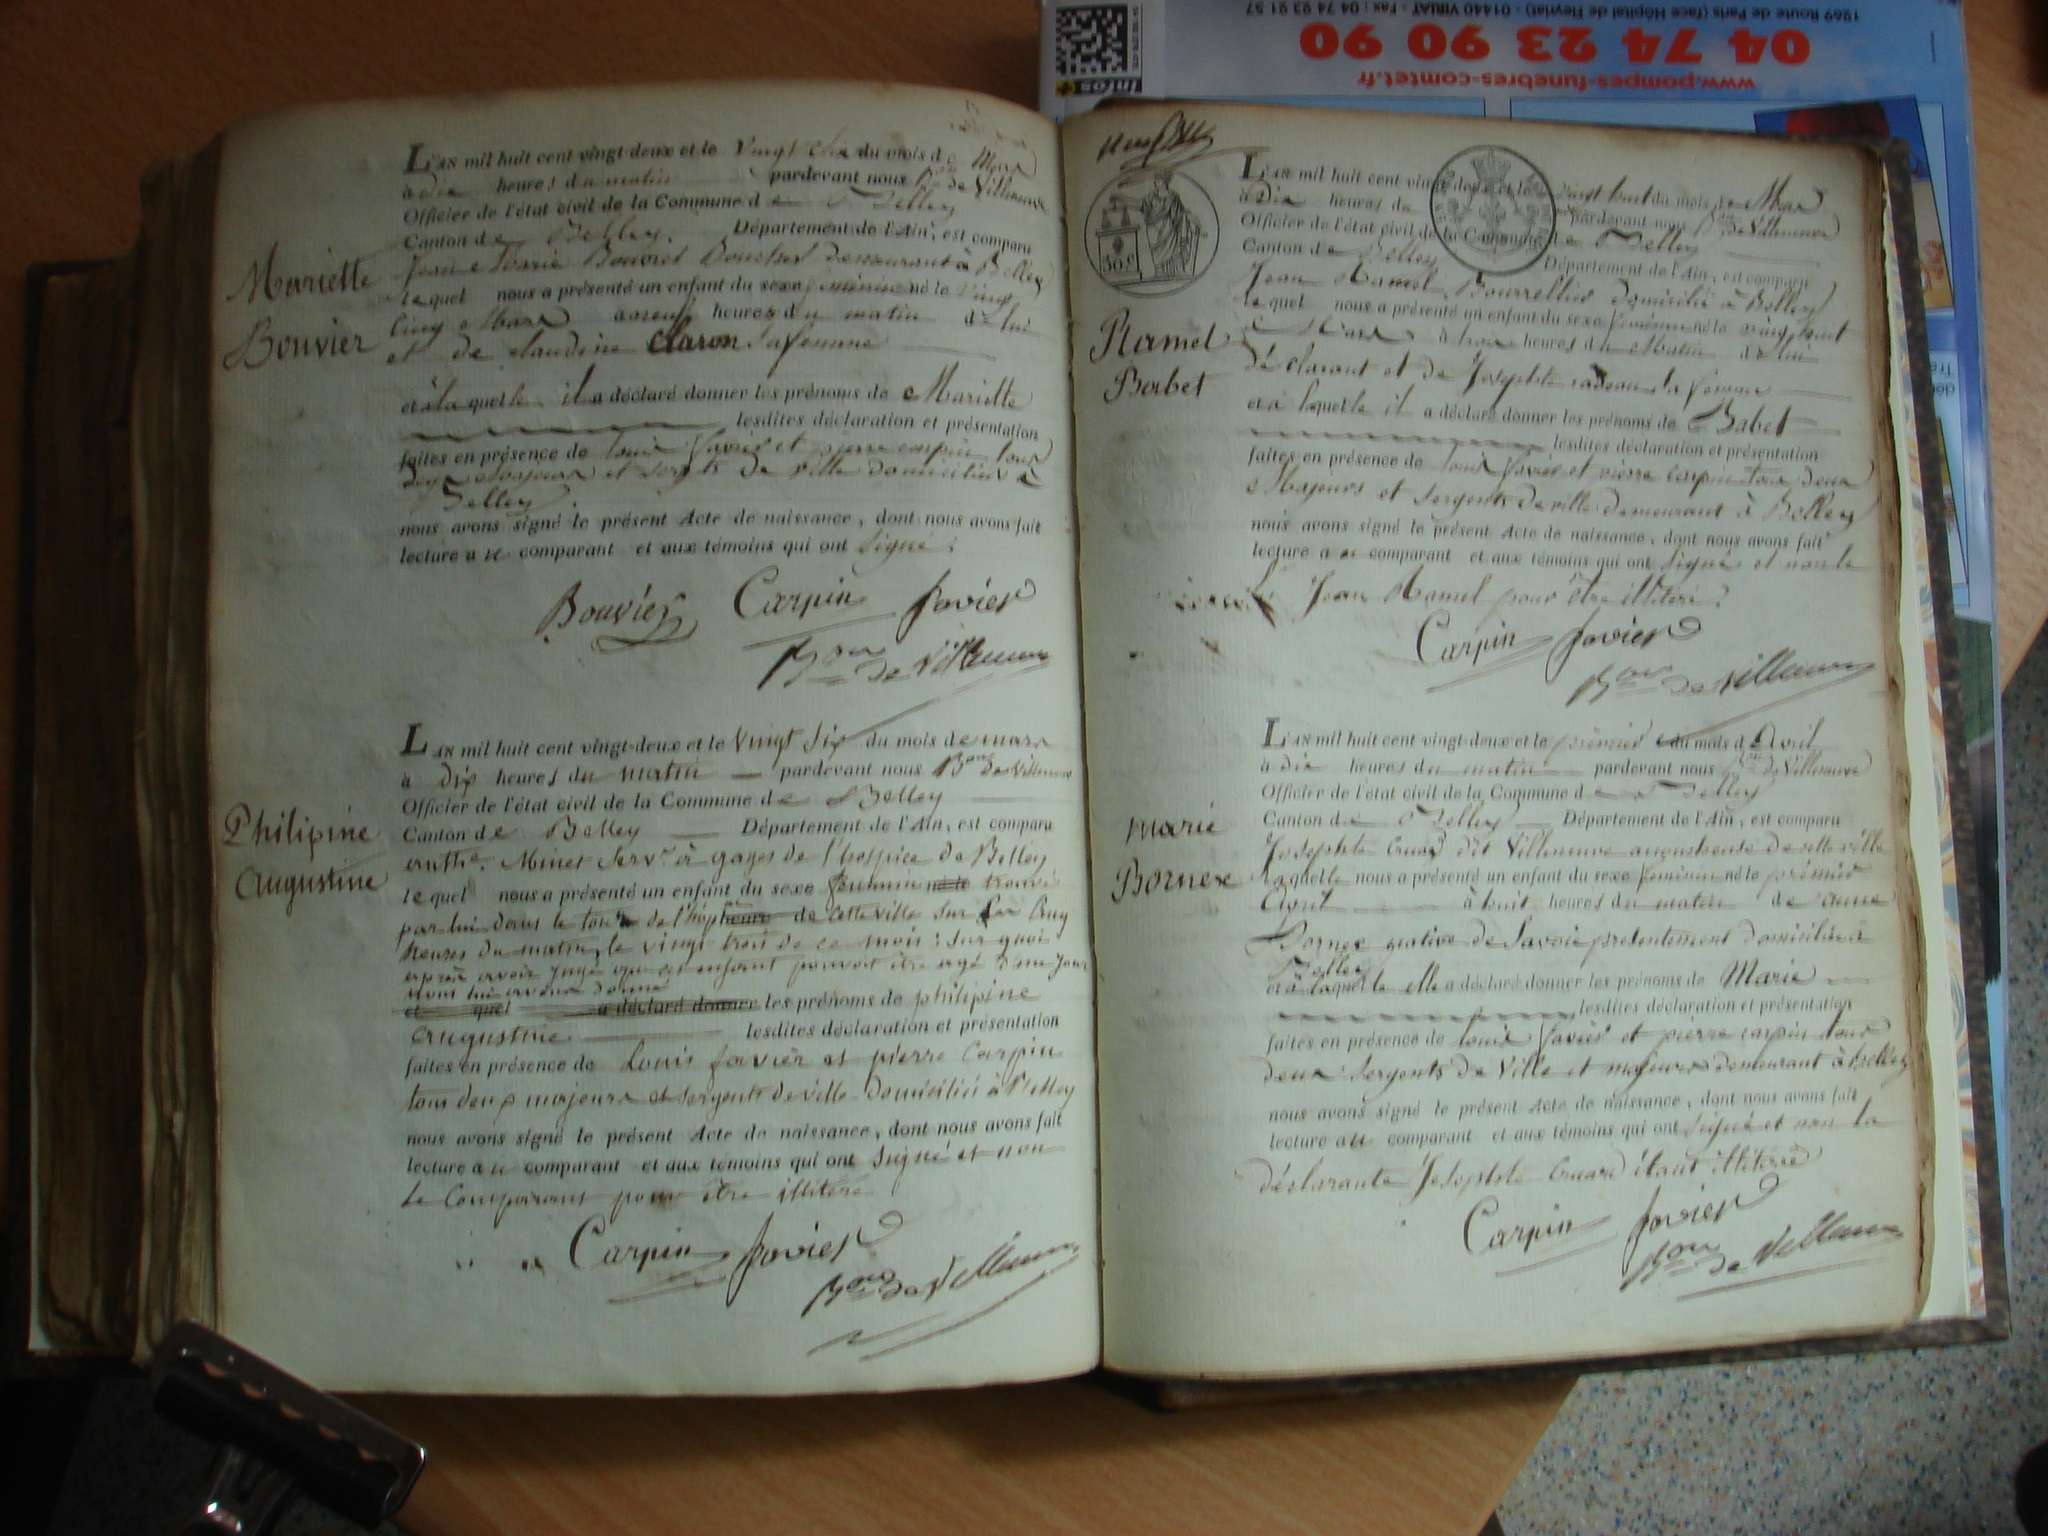 L'AN mil huit cent vingt-deux et le Vingt six du mois de Mars
à dix heures du matin pardevant nous Bon de Villeneuve
Officier de l'état civil de la Commune de Belley
Canton de Belley. Département de l'Ain, est comparu
Jean Marie Bouvier demeurant à Belley
lequel nous a présenté un enfant du sexe féminin né le Vingt
Cinq Mars heures du matin de lui
et de Claudine Claron sa femme
et à laquelle il a déclaré donner les prénoms de Mariette
lesdites déclaration et présentation
faites en présence de Louis Favier et pierre carpin tous
deux Majeurs et sergts de ville domiciliés à
Belley.
nous avons signé le présent Acte de naissance, dont nous avons fait
lecture au comparant et aux témoins qui ont signé.
Mariette
Bouvier
Bouvier Carpin Favier
Bon de Villeneuve
L'AN mil huit cent vingt-deux et le vingt six du mois de mars
à dix heures du matin pardevant nous Bon de Villeneuve
Officier de l'état civil de la Commune de Belley
Canton de Belley Département de l'Ain, est comparu
Anthe. Minet Servr à gages de l'hospice de Belley
lequel nous a présenté un enfant du sexe féminin né le trouvé
par lui dans le tour de l'hôp de cette ville sur les Cinq
heures du matin, le vingt trois de ce mois: sur quoi
après avoir jugé que cet enfant pouvoit être agé d'un jour
nous lui avons donné
et quel a déclaré donner les prénoms de philipine
augustine lesdites déclaration et présentation
faites en présence de Louis favier et pierre Carpin
tous deux majeurs et sergents de ville domiciliés à Belley
nous avons signé le présent Acte de naissance, dont nous avons fait
lecture au comparant et aux témoins qui ont signé et non
le Comparant pour être illitéré
Philipine
augustine
Carpin Favier
Bon de Villeneuve
L'AN mil huit cent vingt-deux et le vingt huit du mois de Mars
à Dix heures du pardevant nous Bon de Villeneuve
Officier de l'état civil de la Commune de Belley
Canton de Belley Département de l'Ain, est comparu
Jean Ramel Bourrellier domicilié à Belley
lequel nous a présenté un enfant du sexe féminin né le vingt huit
Mars à trois heures du Matin de lui
déclarant et de Josephte sa femme
et à laquelle il a déclaré donner les prénoms de Babet
lesdites déclaration et présentation
faites en présence de Louis favier et pierre carpin tous deux
Majeurs et sergents de ville demeurant à Belley
nous avons signé le présent Acte de naissance, dont nous avons fait
lecture au comparant et aux témoins qui ont signé et non le
Jean Ramel pour être illitéré.
30 c
Ramel
Babet
Carpin Favier
Bon de Villeneuve
L'AN mil huit cent vingt-deux et le prémier du mois d'Avril
à dix heures du matin pardevant nous Bon de Villeneuve
Officier de l'état civil de la Commune de Belley
Canton de Belley Département de l'Ain, est comparu
Josephte Cruard dit Villeneuve de cette ville
laquelle nous a présenté un enfant du sexe féminin né le prémier
Avril à huit heures du matin de anne
Bornex native de Savoie présentement domiciliée à
Belley
et à laquelle elle a déclaré donner les prénoms de Marie
lesdites déclaration et présentation
faites en présence de Louis favier et pierre carpin tous
deux Sergents de Ville et majeurs demeurant à belley
nous avons signé le présent Acte de naissance, dont nous avons fait
lecture au comparant et aux témoins qui ont signé et non la
déclarante Josephte Cruard étant illitérée
marie
Bornex
Carpin Favier
Bon de Villeneuve
1269 Route de Paris (face Hôpital de Fleyriat) - 01440 VIRIAT - Fax : 04 74 23 91 57
04 74 23 90 90
www.pompes-funebres-comtet.fr
infos